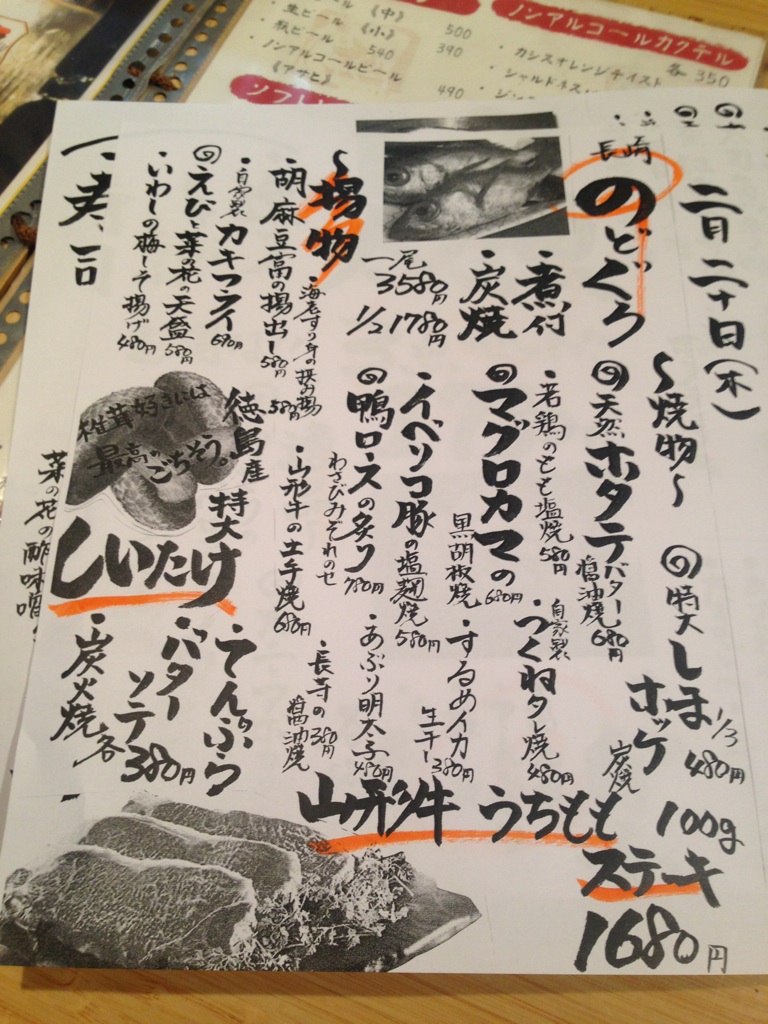 二月二十日(木)
長崎
のどぐろ
煮付
炭焼
一尾 3580円
1/2 1780円
〜焼物〜
◎特大しまホッケ 炭焼 1/3 480円
◎天然ホタテバター醤油焼 680円
・若鶏のもも塩焼 580円
・自家製つくねタレ焼 480円
◎マグロカマの黒胡椒焼 680円
・するめイカ生干し 380円
・イベリコ豚の塩麹焼 580円
・あぶり明太子 480円
◎鴨ロースの炙り わさびみぞれのせ 780円
・長芋の醤油焼 380円
・山形牛の土手焼 680円
〜揚物
・海老すり身の挟み揚 580円
・胡麻豆腐の揚出し 580円
・自家製カキフライ 690円
◎えびと菜の花の天盛 580円
・いわしの梅しそ揚げ 480円
椎茸好きには
最高のごちそう。
徳島産
特大
しいたけ
・てんぷら
・バターソテー
・炭火焼
各380円
山形牛 うちもも
ステーキ
100g
1680円
菜の花の酢味噌
ノンアルコールカクテル
各350
・カシスオレンジテイスト
・シャルドネス
・生ビール《中》 500
《小》 390
・瓶ビール 540
・ノンアルコールビール
《アサヒ》 490
ソフト